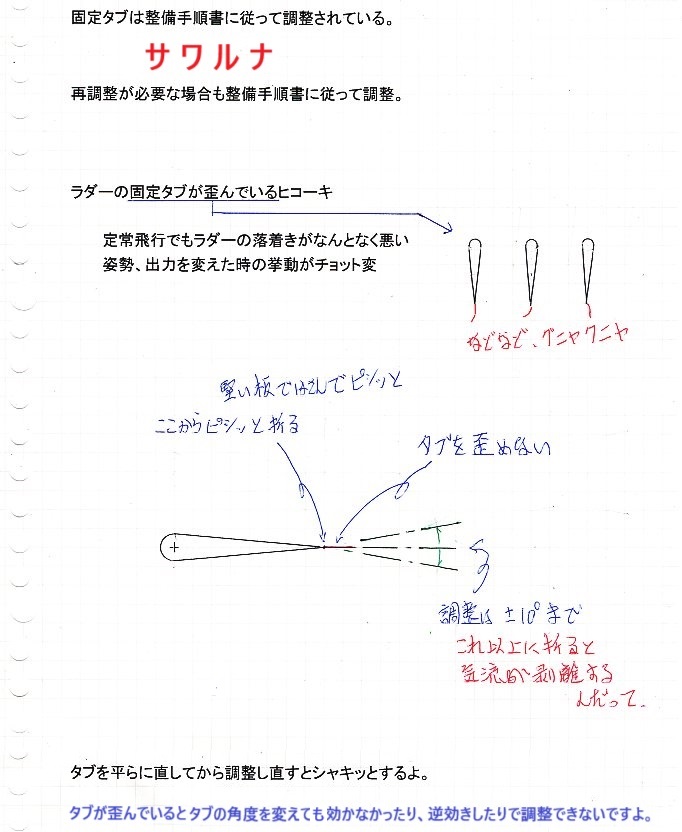 固定タブは整備手順書に従って調整されている。
サワルナ
再調整が必要な場合も整備手順書に従って調整。
ラダーの固定タブが歪んでいるヒコーキ
定常飛行でもラダーの落着きがなんとなく悪い
姿勢、出力を変えた時の挙動がチョット変
などなど、グニャグニャ
堅い板ではさんでピシッと
ここからピシッと折る
タブを歪めない
調整は ±10°まで
これ以上に折ると
気流が剥離する
んだって。
タブを平らに直してから調整し直すとシャキッとするよ。
タブが歪んでいるとタブの角度を変えても効かなかったり、逆効きしたりで調整できないですよ。